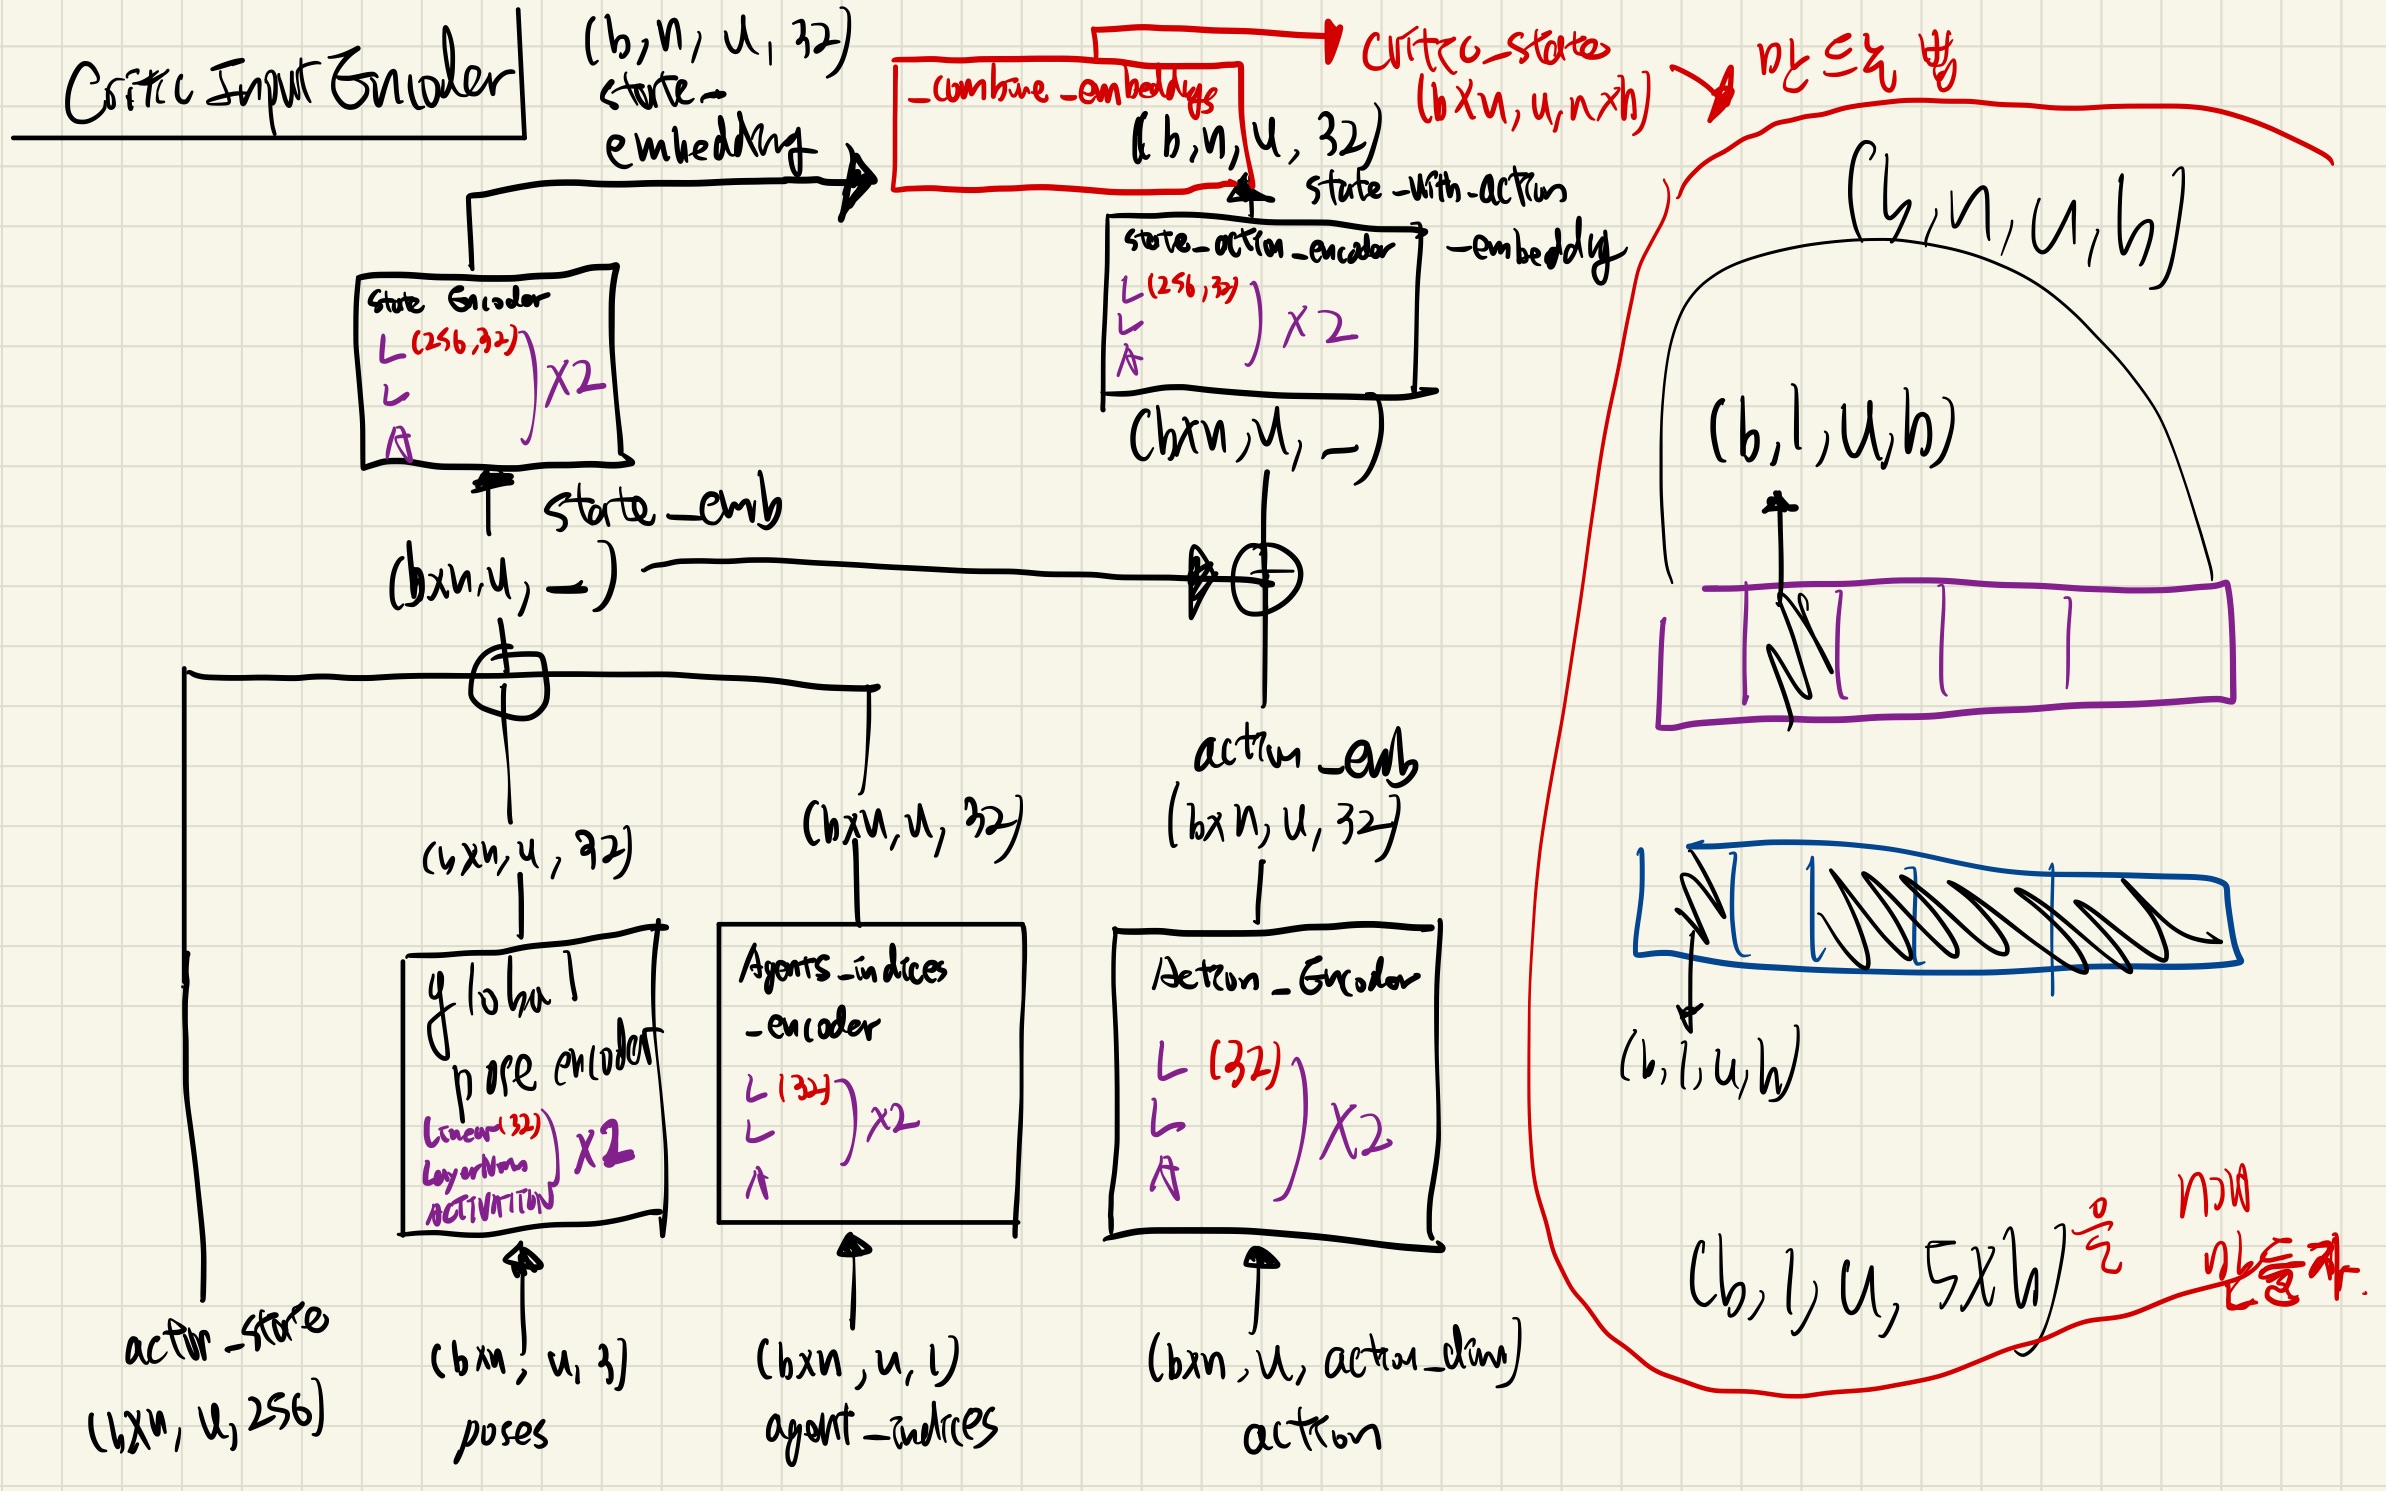 Critic Input Encoder
(b, n, u, 32)
state_
embedding
_combine_embeddings
critic_state
(b×n, u, n×h)
만드는 법
(b, n, u, 32)
state_with_action
_embeddg
state Encoder
L (256,32)
L
A
×2
state_action_encoder
L (256,32)
L
A
×2
(b×n, u, _)
state_emb
(b×n, u, _)
action_emb
(b×n, u, 32)
(b×n, u, 32)
(b×n, u, 32)
global
pose encoder
Linear (32)
LayerNorm
ACTIVATION
×2
Agents_indices
_encoder
L (32)
L
A
×2
Action_Encoder
L (32)
L
A
×2
actor_state
(b×n, u, 256)
(b×n, u, 3)
poses
(b×n, u, 1)
agent_indices
(b×n, u, action_dim)
action
(b, n, u, h)
(b, 1, u, h)
(b, 1, u, h)
(b, 1, u, 5×h)을 n개
만들자.